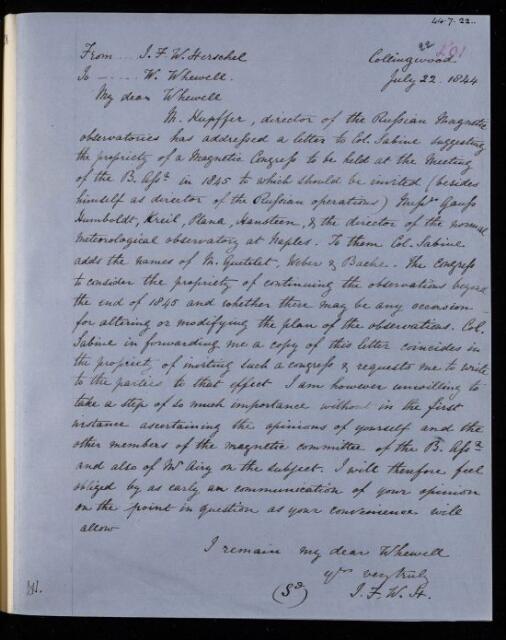 44.7.22.
22
201
From — J. F. W. Herschel
Collingwood.
To — — — W. Whewell.
July 22. 1844
My dear Whewell
M. Kupffer, director of the Russian Magnetic
observatories has addressed a letter to Col. Sabine suggesting
the propriety of a Magnetic Congress to be held at the Meeting
of the B. Assn in 1845 to which should be invited (besides
himself as director of the Russian operations) Messrs Gauss
Humboldt, Kreil, Plana, Hansteen, & the director of the
meteorological observatory at Naples. To them Col. Sabine
adds the names of M. Quetelet, Weber & Bache. The Congress
to consider the propriety of continuing the observations beyond
the end of 1845 and whether there may be any occasion
for altering or modifying the plan of the observations. Col.
Sabine in forwarding me a copy of this letter coincides in
the propriety of inviting such a congress & requests me to write
to the parties to that effect I am however unwilling to
take a step of so much importance without in the first
instance ascertaining the opinions of yourself and the
other members of the magnetic committee of the B. Assn
and also of Mr Airy on the subject. I will therefore feel
obliged by as early an communication of your opinion
on the point in question as your convenience will
allow
I remain my dear Whewell
yrs very truly
(Sd) J. F. W. H.